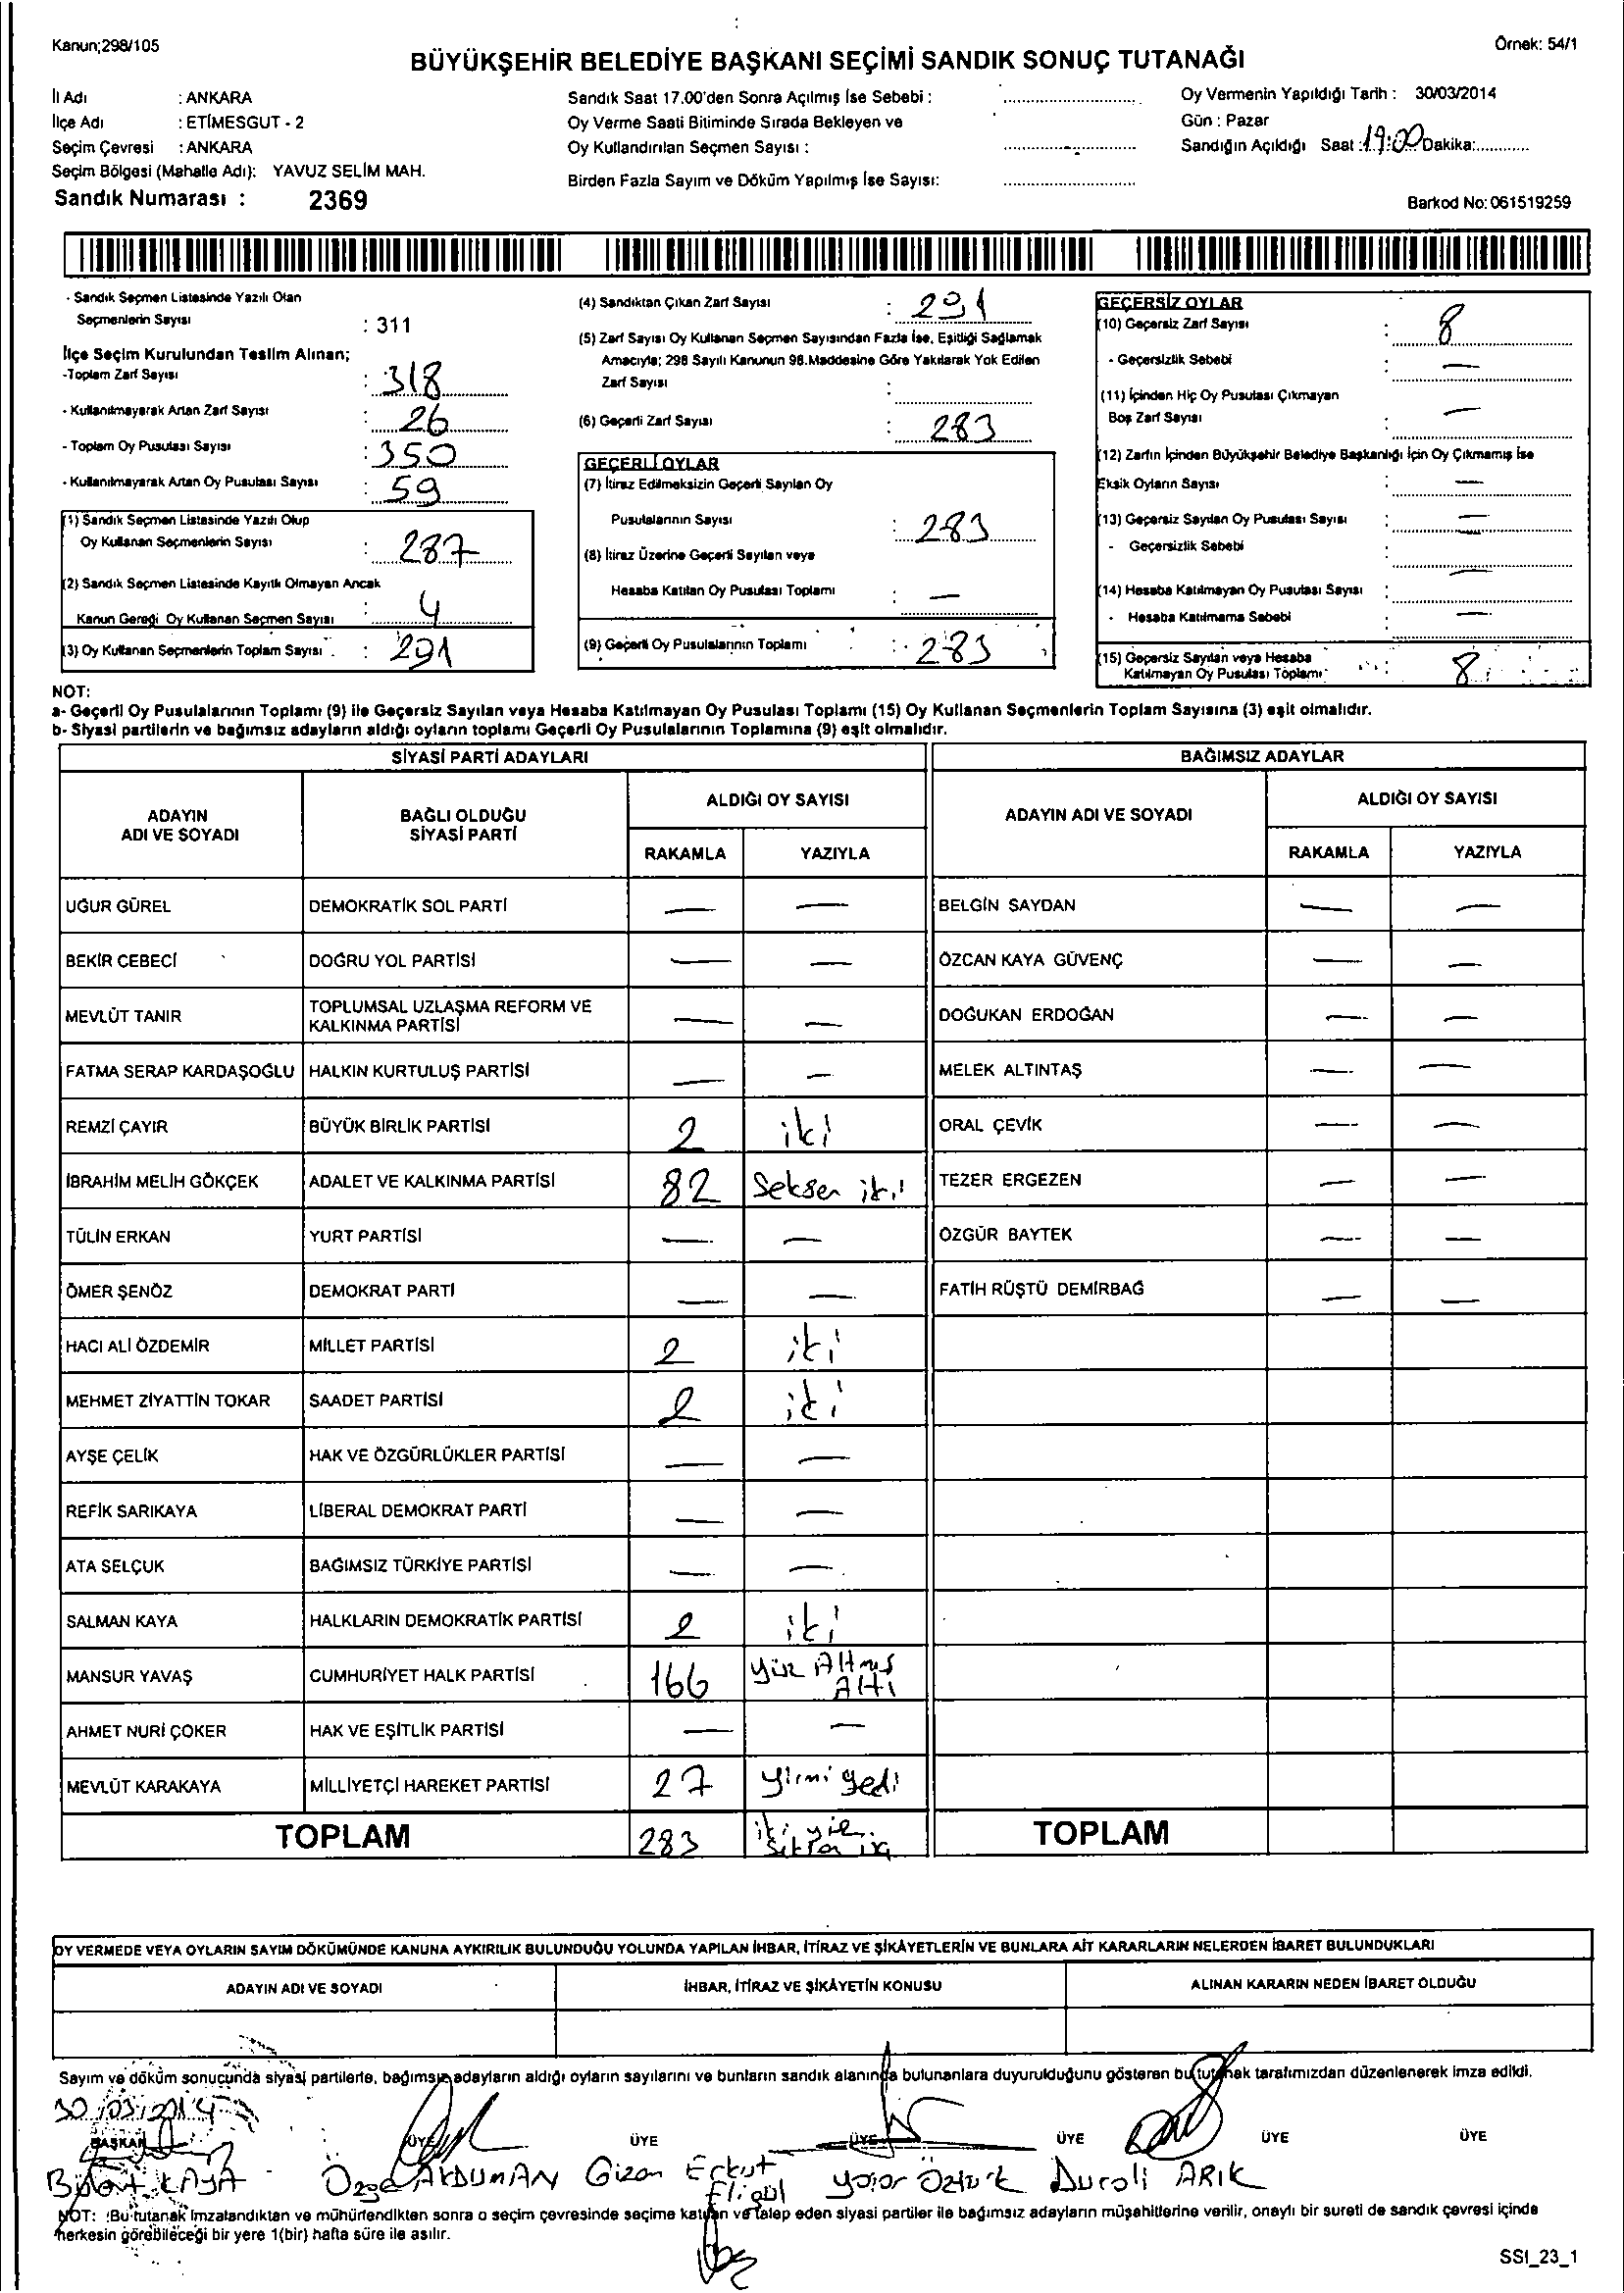 Kanun;298/105
Örnek: 54/1
BÜYÜKŞEHİR BELEDİYE BAŞKANI SEÇİMİ SANDIK SONUÇ TUTANAĞI
İl Adı : ANKARA
İlçe Adı : ETİMESGUT - 2
Seçim Çevresi : ANKARA
Seçim Bölgesi (Mahalle Adı): YAVUZ SELİM MAH.
Sandık Numarası : 2369
Sandık Saat 17.00'den Sonra Açılmış İse Sebebi :
Oy Verme Saati Bitiminde Sırada Bekleyen ve
Oy Kullandırılan Seçmen Sayısı :
Birden Fazla Sayım ve Döküm Yapılmış İse Sayısı:
Oy Vermenin Yapıldığı Tarih : 30/03/2014
Gün : Pazar
Sandığın Açıldığı Saat : 19:00 Dakika:
Barkod No: 061519259
- Sandık Seçmen Listesinde Yazılı Olan
Seçmenlerin Sayısı : 311
İlçe Seçim Kurulundan Teslim Alınan;
-Toplam Zarf Sayısı : 318
- Kullanılmayarak Artan Zarf Sayısı : 26
- Toplam Oy Pusulası Sayısı : 350
- Kullanılmayarak Artan Oy Pusulası Sayısı : 59
(1) Sandık Seçmen Listesinde Yazılı Olup
Oy Kullanan Seçmenlerin Sayısı : 287
(2) Sandık Seçmen Listesinde Kayıtlı Olmayan Ancak
Kanun Gereği Oy Kullanan Seçmen Sayısı : 4
(3) Oy Kullanan Seçmenlerin Toplam Sayısı : 291
(4) Sandıktan Çıkan Zarf Sayısı : 291
(5) Zarf Sayısı Oy Kullanan Seçmen Sayısından Fazla İse, Eşitliği Sağlamak
Amacıyla; 298 Sayılı Kanunun 98.Maddesine Göre Yakılarak Yok Edilen
Zarf Sayısı :
(6) Geçerli Zarf Sayısı : 283
GEÇERLİ OYLAR
(7) İtiraz Edilmeksizin Geçerli Sayılan Oy
Pusulalarının Sayısı : 283
(8) İtiraz Üzerine Geçerli Sayılan veya
Hesaba Katılan Oy Pusulası Toplamı : —
(9) Geçerli Oy Pusulalarının Toplamı : 283
GEÇERSİZ OYLAR
(10) Geçersiz Zarf Sayısı : 8
- Geçersizlik Sebebi : —
(11) İçinden Hiç Oy Pusulası Çıkmayan
Boş Zarf Sayısı : —
(12) Zarfın İçinden Büyükşehir Belediye Başkanlığı İçin Oy Çıkmamış İse
Eksik Oyların Sayısı : —
(13) Geçersiz Sayılan Oy Pusulası Sayısı : —
- Geçersizlik Sebebi :
(14) Hesaba Katılmayan Oy Pusulası Sayısı : —
- Hesaba Katılmama Sebebi : —
(15) Geçersiz Sayılan veya Hesaba
Katılmayan Oy Pusulası Toplamı : 8
NOT:
a- Geçerli Oy Pusulalarının Toplamı (9) ile Geçersiz Sayılan veya Hesaba Katılmayan Oy Pusulası Toplamı (15) Oy Kullanan Seçmenlerin Toplam Sayısına (3) eşit olmalıdır.
b- Siyasi partilerin ve bağımsız adayların aldığı oyların toplamı Geçerli Oy Pusulalarının Toplamına (9) eşit olmalıdır.
SİYASİ PARTİ ADAYLARI
ADAYIN ADI VE SOYADI BAĞLI OLDUĞU SİYASİ PARTİ ALDIĞI OY SAYISI
RAKAMLA YAZIYLA
UĞUR GÜREL DEMOKRATİK SOL PARTİ — —
BEKİR CEBECİ DOĞRU YOL PARTİSİ — —
MEVLÜT TANIR TOPLUMSAL UZLAŞMA REFORM VE KALKINMA PARTİSİ — —
FATMA SERAP KARDAŞOĞLU HALKIN KURTULUŞ PARTİSİ — —
REMZİ ÇAYIR BÜYÜK BİRLİK PARTİSİ 2 iki
İBRAHİM MELİH GÖKÇEK ADALET VE KALKINMA PARTİSİ 82 Seksen iki
TÜLİN ERKAN YURT PARTİSİ — —
ÖMER ŞENÖZ DEMOKRAT PARTİ — —
HACI ALİ ÖZDEMİR MİLLET PARTİSİ 2 iki
MEHMET ZİYATTİN TOKAR SAADET PARTİSİ 2 iki
AYŞE ÇELİK HAK VE ÖZGÜRLÜKLER PARTİSİ — —
REFİK SARIKAYA LİBERAL DEMOKRAT PARTİ — —
ATA SELÇUK BAĞIMSIZ TÜRKİYE PARTİSİ — —
SALMAN KAYA HALKLARIN DEMOKRATİK PARTİSİ 2 iki
MANSUR YAVAŞ CUMHURİYET HALK PARTİSİ 166 Yüz Altmış Altı
AHMET NURİ ÇOKER HAK VE EŞİTLİK PARTİSİ — —
MEVLÜT KARAKAYA MİLLİYETÇİ HAREKET PARTİSİ 27 Yirmi Yedi
TOPLAM 283 iki yüz
BAĞIMSIZ ADAYLAR
ADAYIN ADI VE SOYADI ALDIĞI OY SAYISI
RAKAMLA YAZIYLA
BELGİN SAYDAN — —
ÖZCAN KAYA GÜVENÇ — —
DOĞUKAN ERDOĞAN — —
MELEK ALTINTAŞ — —
ORAL ÇEVİK — —
TEZER ERGEZEN — —
ÖZGÜR BAYTEK — —
FATİH RÜŞTÜ DEMİRBAĞ — —
TOPLAM
OY VERMEDE VEYA OYLARIN SAYIM DÖKÜMÜNDE KANUNA AYKIRILIK BULUNDUĞU YOLUNDA YAPILAN İHBAR, İTİRAZ VE ŞİKÂYETLERİN VE BUNLARA AİT KARARLARIN NELERDEN İBARET BULUNDUKLARI
ADAYIN ADI VE SOYADI İHBAR, İTİRAZ VE ŞİKÂYETİN KONUSU ALINAN KARARIN NEDEN İBARET OLDUĞU
Sayım ve döküm sonucunda siyasi partilerle, bağımsız adayların aldığı oyların sayılarını ve bunların sandık alanında bulunanlara duyurulduğunu gösteren bu tutanak tarafımızdan düzenlenerek imza edildi.
30/03/2014
BAŞKAN ÜYE ÜYE ÜYE ÜYE ÜYE ÜYE
KAYA Özge AKDUMAN Gizem Erkut Yaşar Öztürk Durali ARIK
NOT: Bu tutanak imzalandıktan ve mühürlendikten sonra o seçim çevresinde seçime katılan ve talep eden siyasi partiler ile bağımsız adayların müşahitlerine verilir, onaylı bir sureti de sandık çevresi içinde
herkesin görebileceği bir yere 1(bir) hafta süre ile asılır.
SSI_23_1